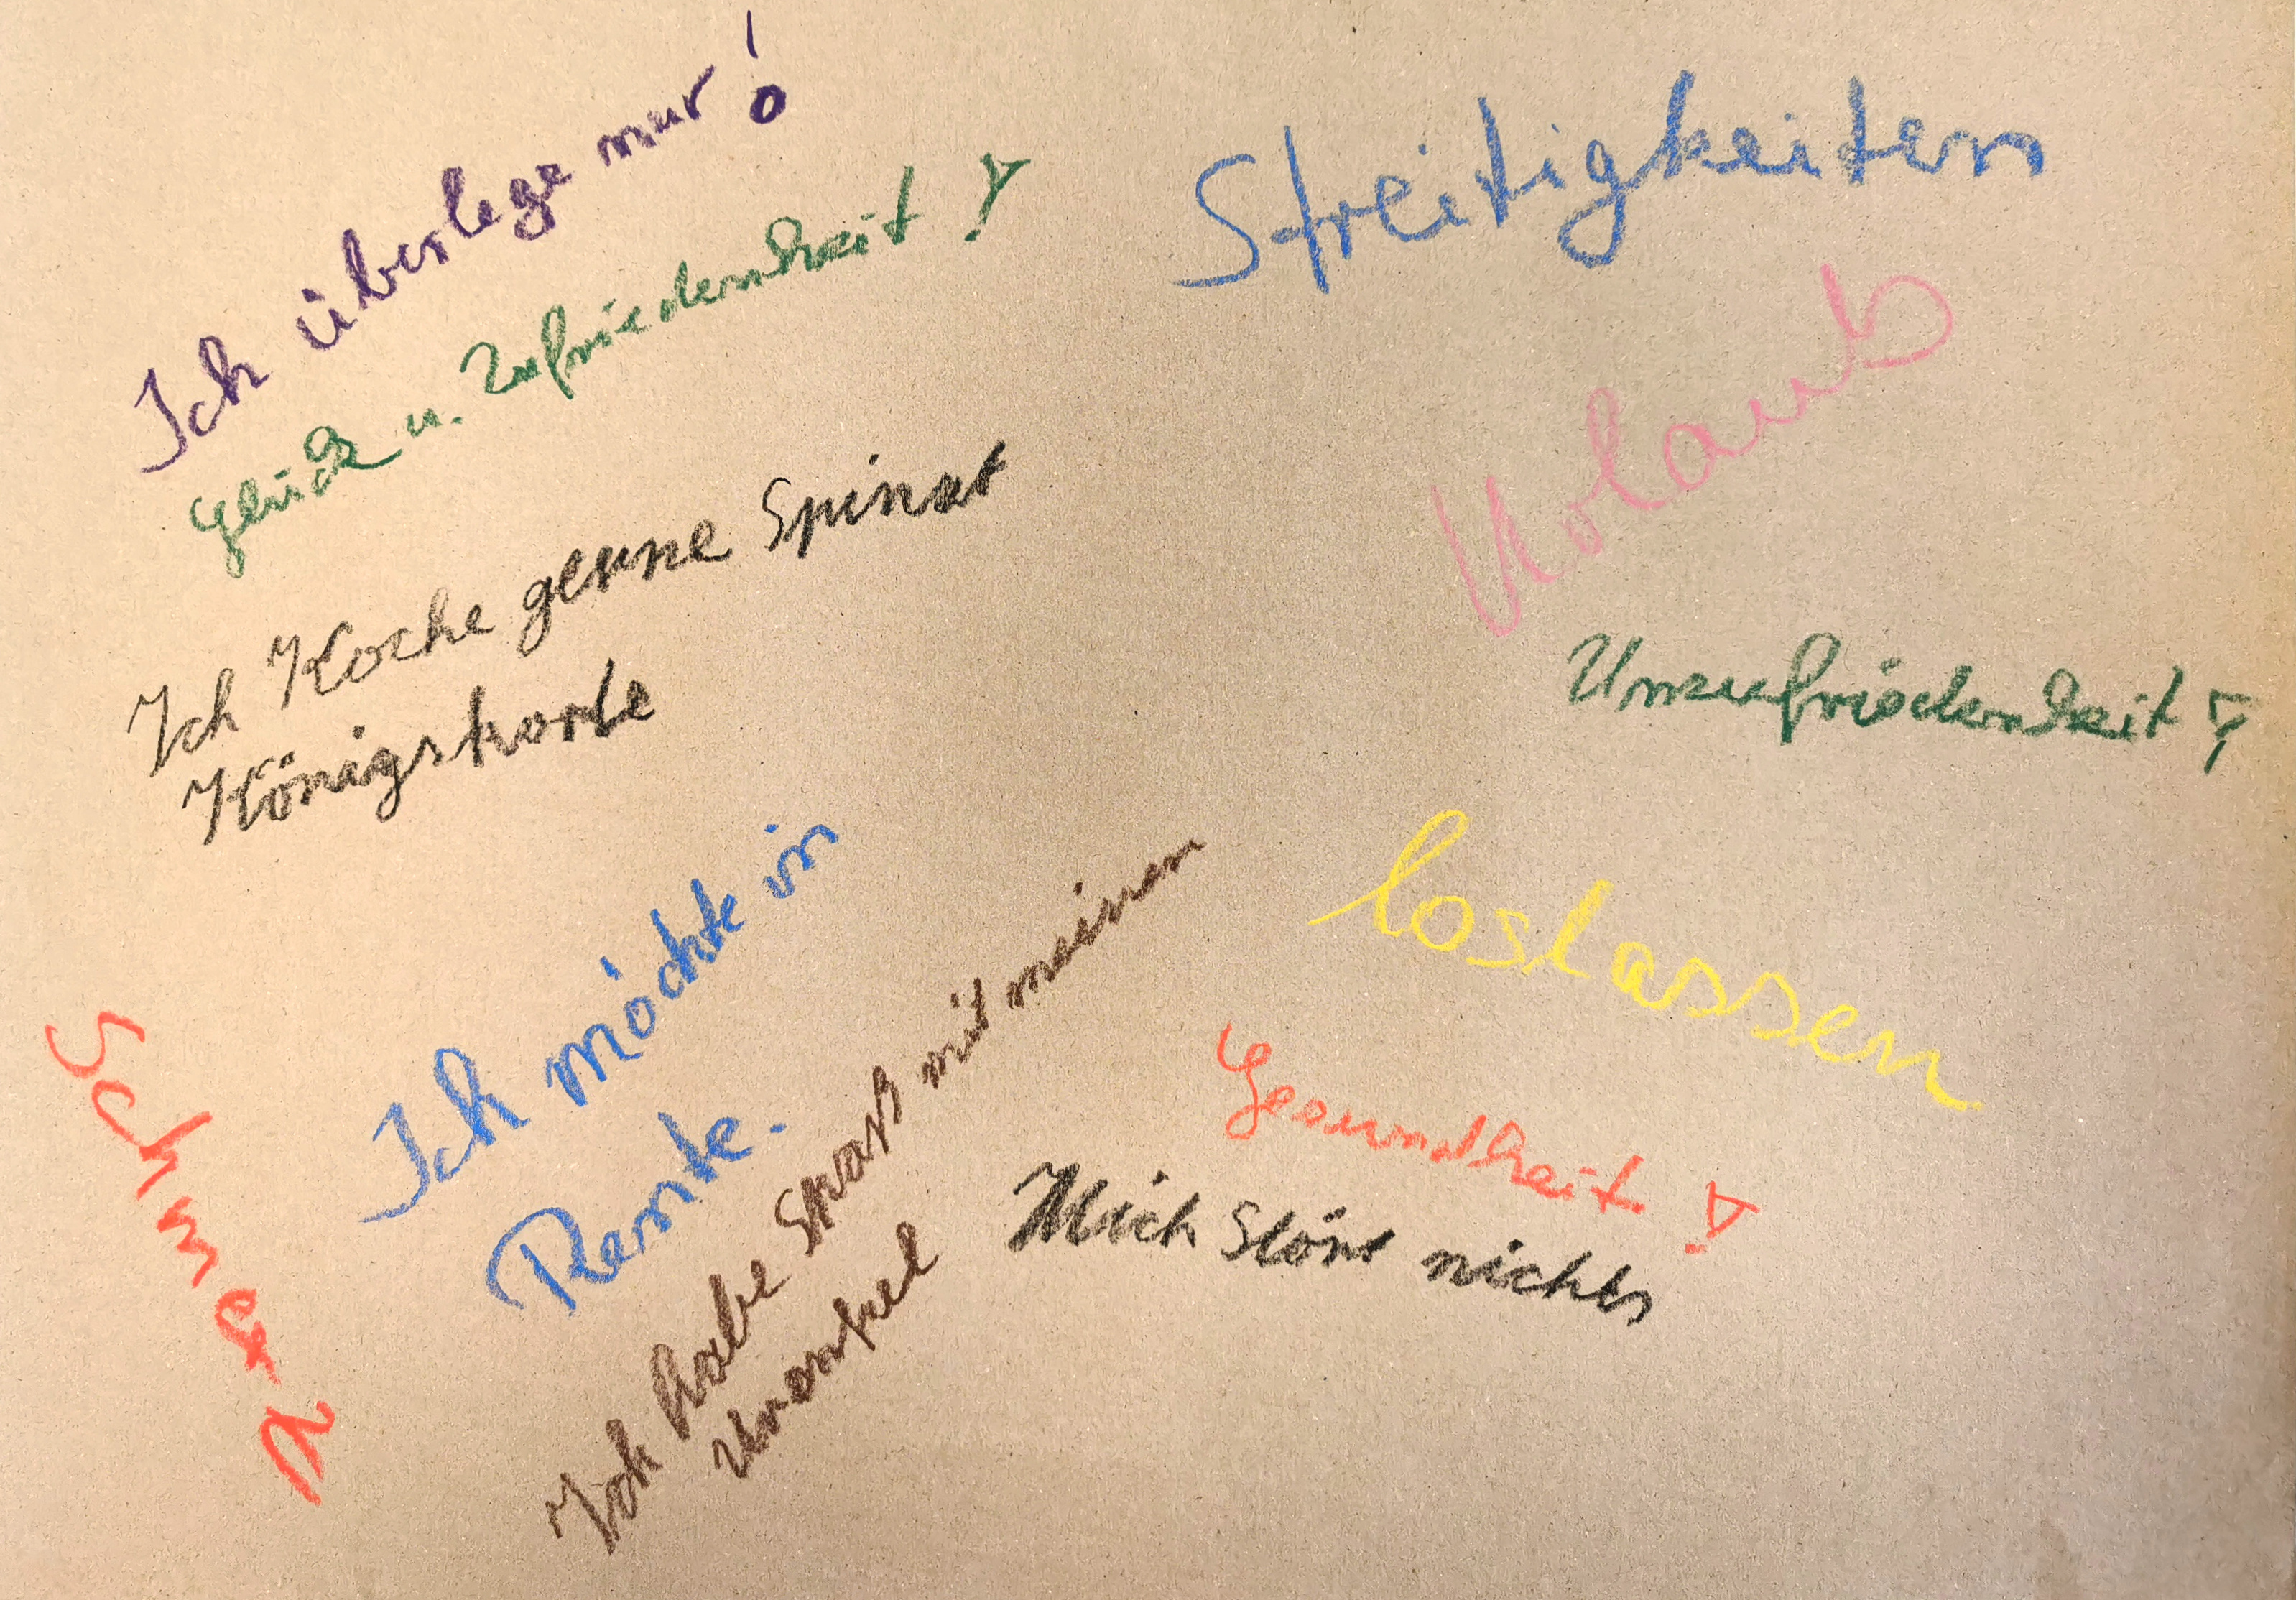 Ich überlege nur!
Glück u. Zufriedenheit!
Ich Koche gerne Spinat
Königstorte
Ich möchte in
Rente.
Ich habe Spaß mit meinen
Uronkel
Schmerz
Streitigkeiten
Urlaub
Unzufriedenheit!
loslassen
Gesundheit!
Mich Stört nichts